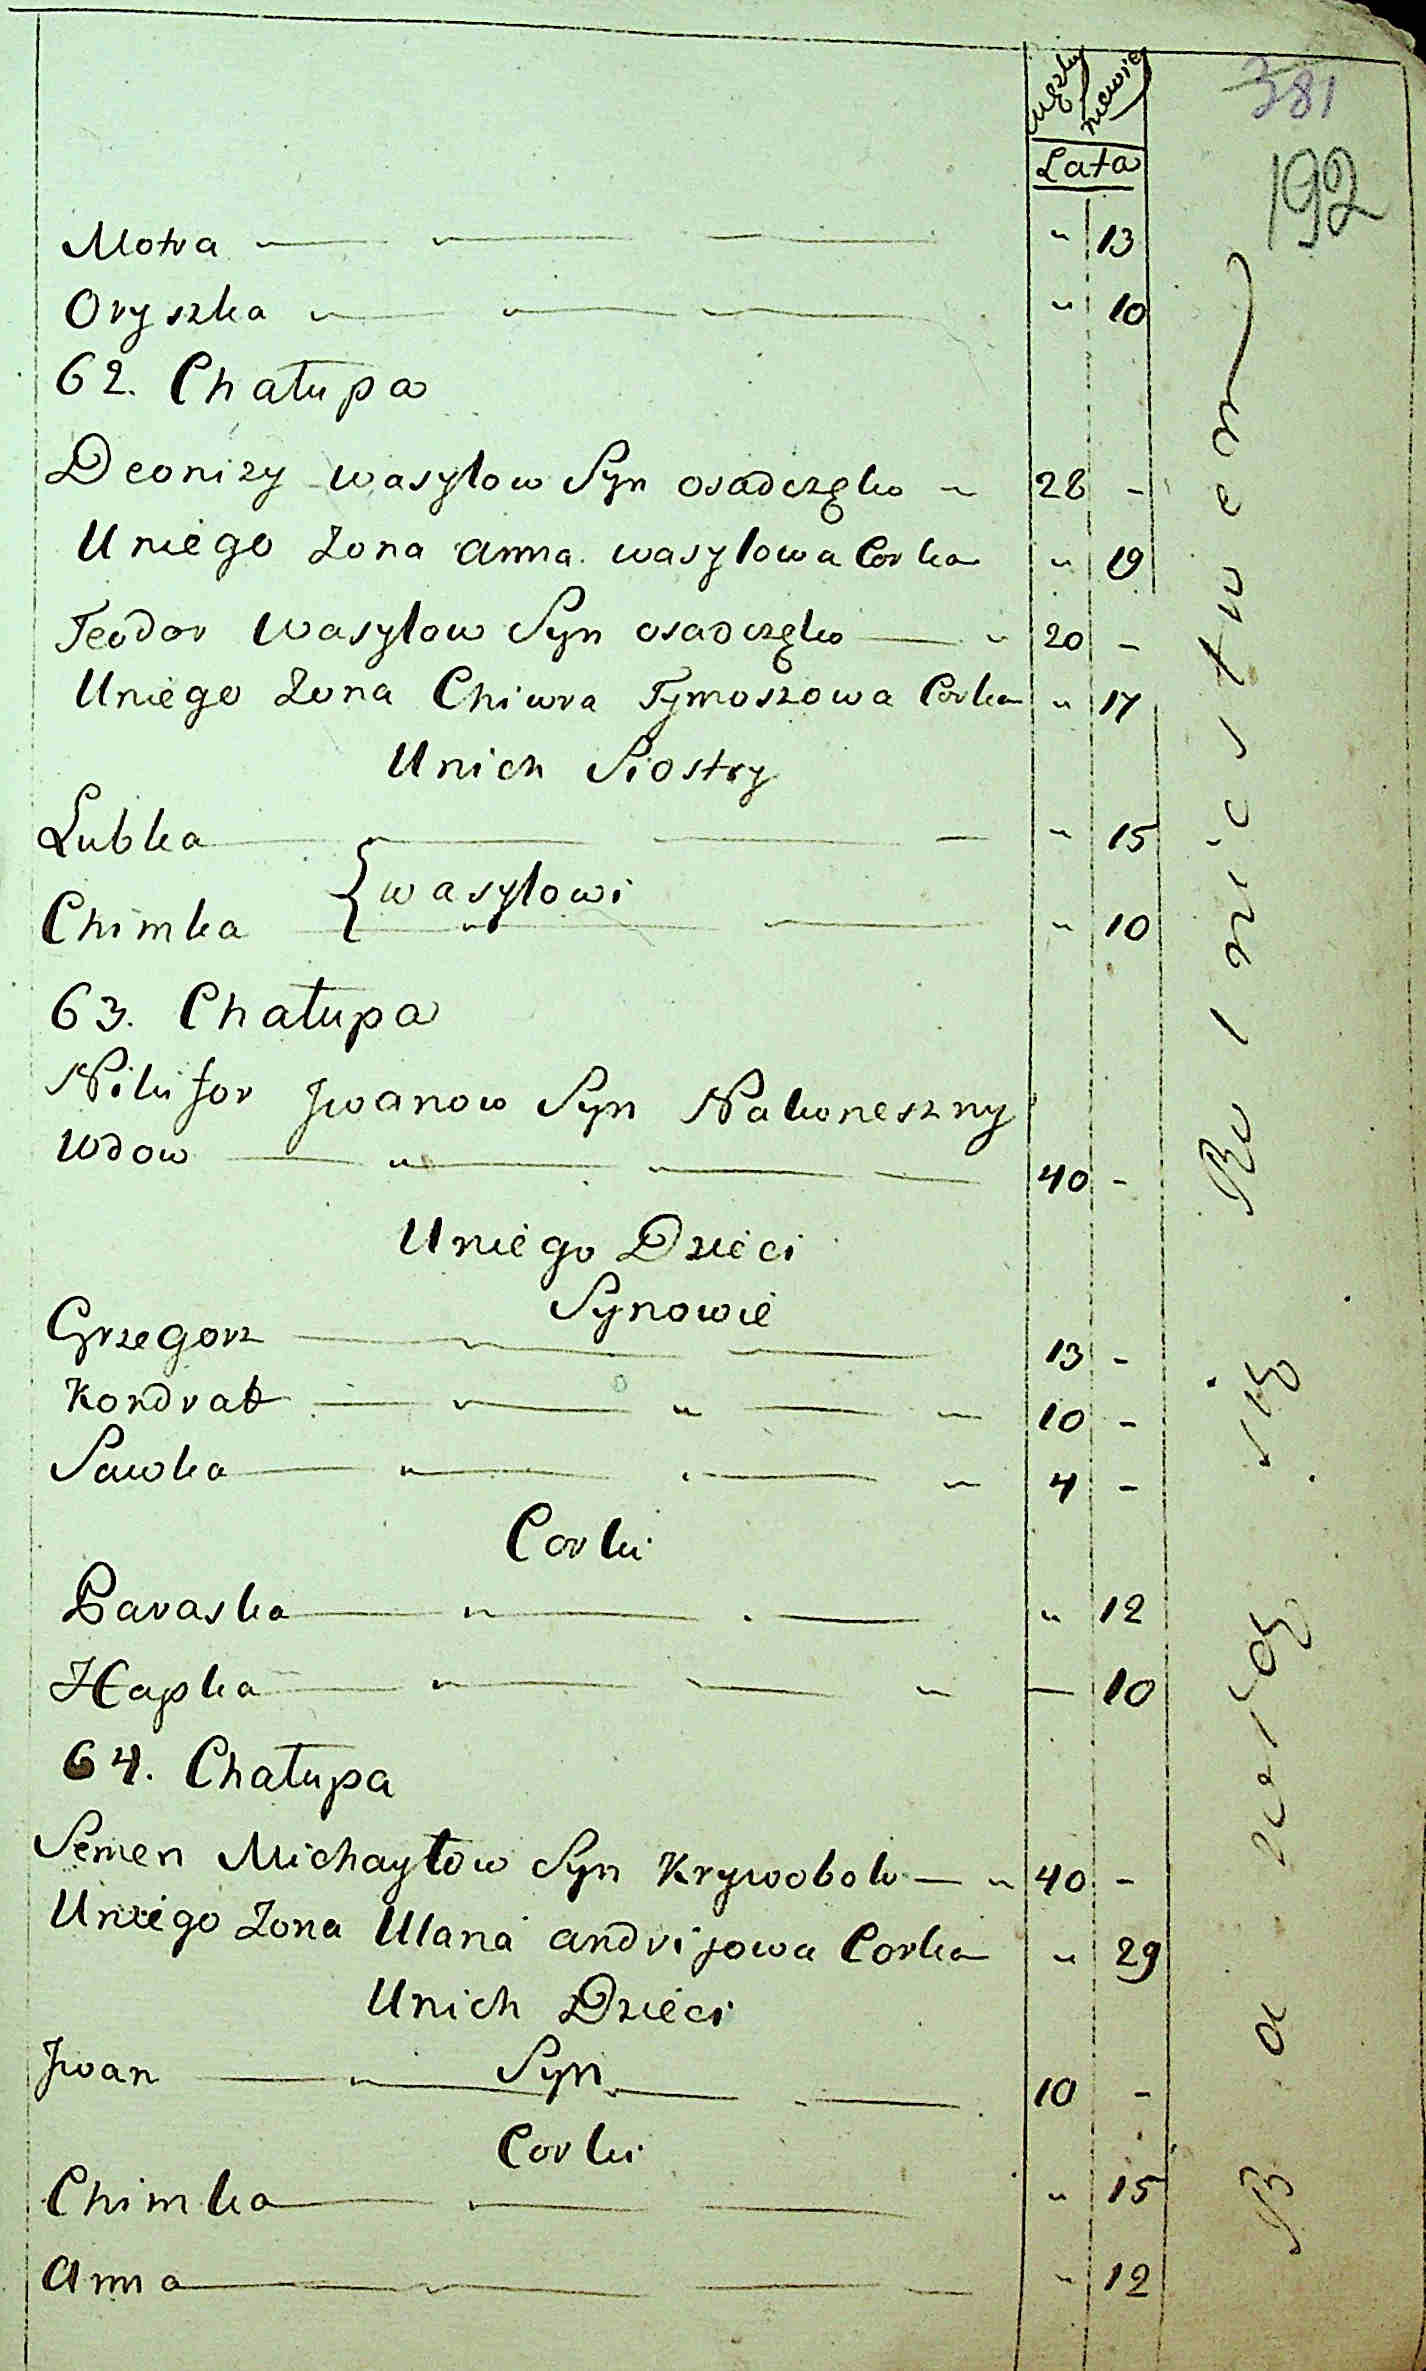 męzka niewie
381
Lata
192
Motra — — — „ 13
Oryszka „ — — „ 10
62. Chałupa
Deonizy wasylow Syn osadczęko 28 -
Uniego Zona anna wasylowa Corka „ 19
Teodor Wasylow Syn osadczęko — „ 20 -
Uniego Zona Chiwra Tymoszowa Corka „ 17
Unich Siostry
Lubka — — — „ 15
{ wasylowi
Chimka — — — „ 10
63. Chałupa
Nikifor Jwanow Syn Nakoneszny
Wdow — „ — — 40 -
Uniego Dzieci
Synowie
Grzegorz — — — 13 -
Kondrat — — „ — 10 -
Sawka — „ — — „ 4 -
Corki
Paraska — „ — — „ 12
Hapka — „ — — „ — 10
64. Chałupa
Semen Michayłow Syn Krywobok — „ 40 -
Uniego Zona Ulana andrijowa Corka „ 29
Unich Dzieci
Jwan — „ — Syn — — 10 -
Corki
Chimka — — — „ 15
anna — — — „ 12
Bawią się Rolnictwem